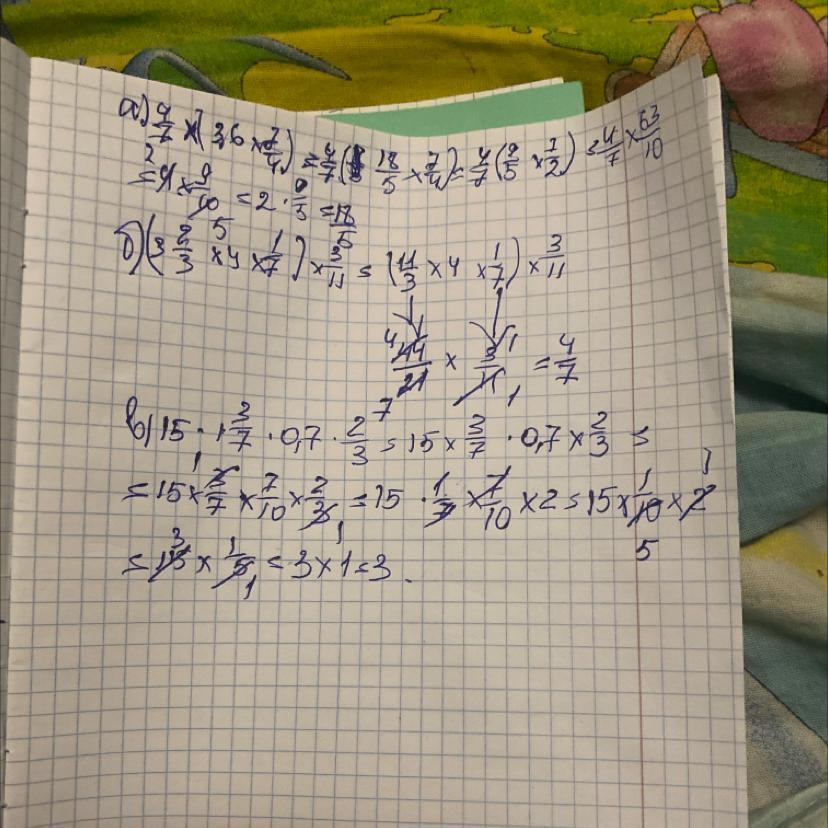 а) 4/7 × (3,6 × 7/4) = 4/7 (18/5 × 7/4) = 4/7 (9/5 × 7/2) = 4/7 × 63/10
= 4 × 9/10 = 2 · 9/5 = 18/5
б) (3 2/3 × 4 × 1/7) × 3/11 = (11/3 × 4 × 1/7) × 3/11
44/21 × 3/11 = 4/7
в) 15 · 1 3/7 · 0,7 · 2/3 = 15 × 3/7 · 0,7 × 2/3 =
= 15 × 3/7 × 7/10 × 2/3 = 15 · 1/7 × 7/10 × 2 = 15 × 1/10 × 2
= 15 × 1/5 = 3 × 1 = 3.